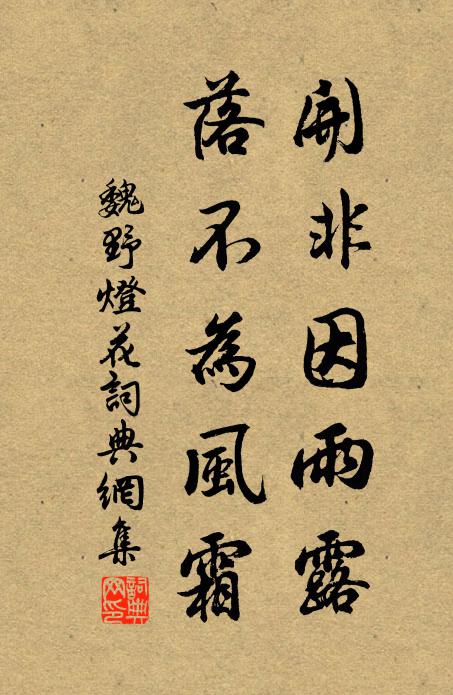 開非因雨露
落不為風霜
魏野燈花詞典網集
詞典網印